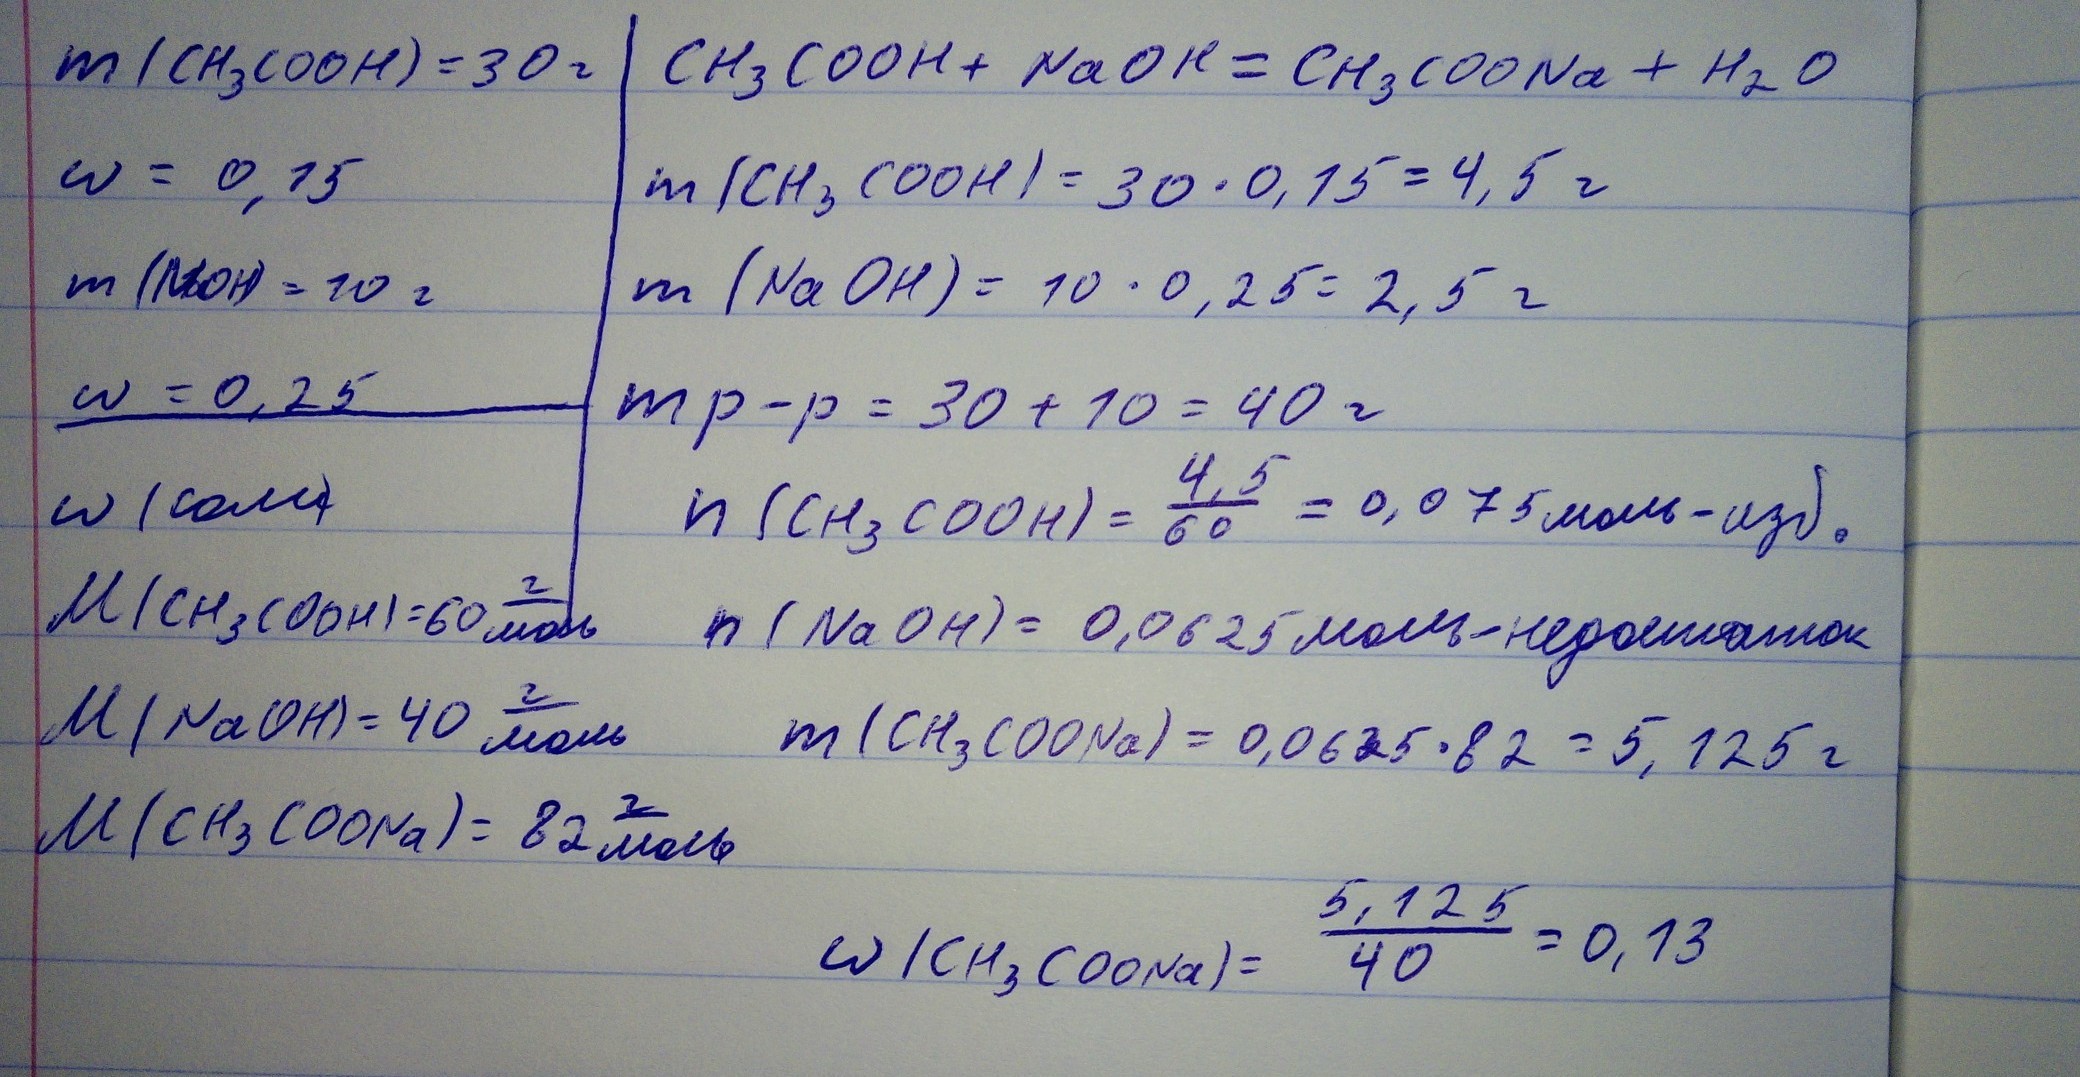 m(CH₃COOH)=30г
w = 0,15
m(NaOH)=10г
w = 0,25
w(соли)
M(CH₃COOH)=60 г/моль
M(NaOH)=40 г/моль
M(CH₃COONa)=82 г/моль
CH₃COOH + NaOH = CH₃COONa + H₂O
m(CH₃COOH)=30·0,15=4,5г
m(NaOH)=10·0,25=2,5г
mр-р=30+10=40г
n(CH₃COOH)=4,5/60=0,075моль-изб.
n(NaOH)=0,0625моль-недостаток
m(CH₃COONa)=0,0625·82=5,125г
w(CH₃COONa)=5,125/40=0,13